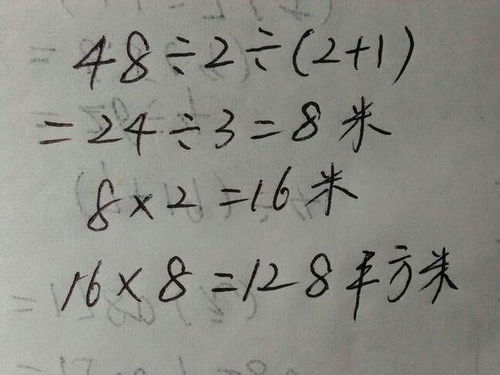 48÷2÷(2+1)
=24÷3=8米
8×2=16米
16×8=128平方米